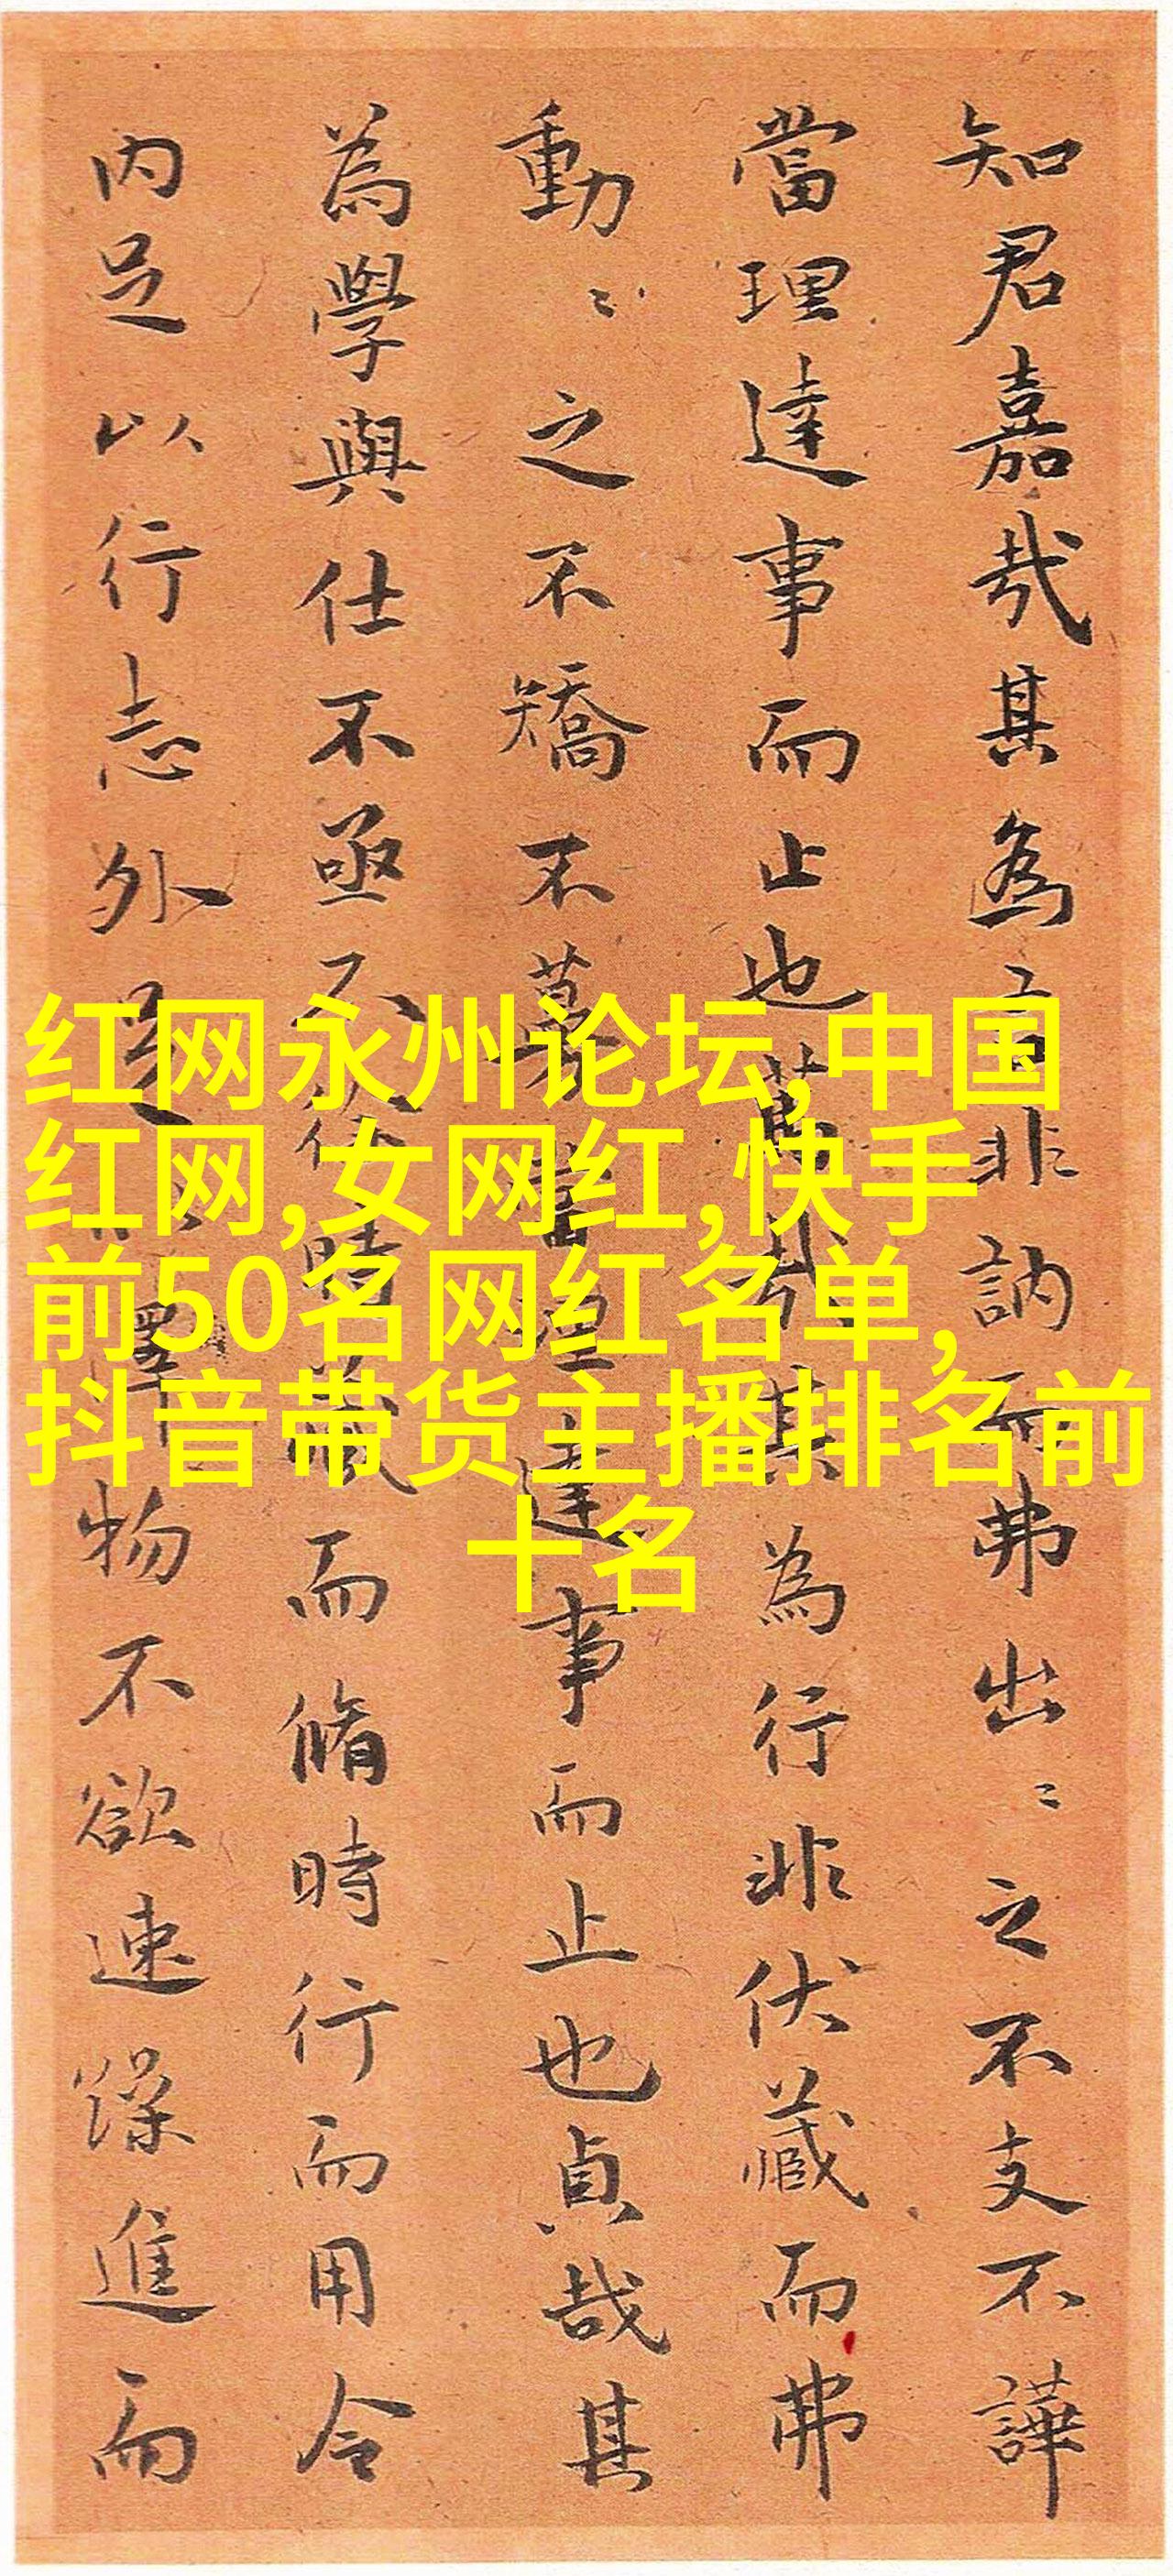 知君嘉哉其為言非訥而弗出〻之不支不譁
當理達事而止也哉其為行非伏藏而弗
動〻之不矯不當理達事而止也貞哉其
為學與仕不亟不時藏而脩時行而用令
内足以行志外足澤物不欲速躁進而
红网永州论坛,中国
红网,女网红,快手
前50名网红名单,
抖音带货主播排名前
十名